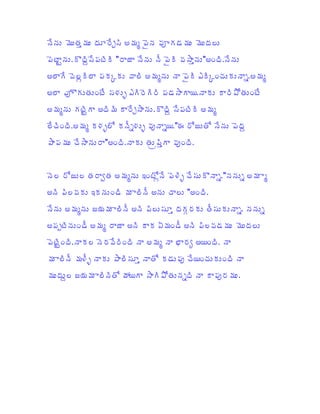 నేను మొత్తము దూర్చేసి అమ్మ పైన పూగడము మొదలు
పెట్టాను.కొద్దిసేపటికి "రాజా నేను నీ పైకి వస్తాను"అంది.నేను
అలాగే వెల్లకిలా పక్కకు వాలి అమ్మను నా పైకి ఎక్కించుకున్నా.అమ్మ
అలా ఎగురుతుంటే సళ్ళు ఎగిరెగిరి పడసాగాయి.నాకు కారిపోతుంటే
అమ్మను గట్టిగా అదిమి కార్చేసాను.కొద్ది సేపటికి అమ్మ
లేచింది.అమ్మ కళ్ళలో కన్నీళ్ళు వున్నాయి."ఈ రోజుతో నేను పెద్ద
పాపము చేసానురా"అంది.నాకు తృప్తిగా వుంది.

నెల రోజుల తరావ్త అమ్మను ఇంట్లోనే పెళ్ళి చేసుకొన్నా."నన్ను అమ్మా
అని పిలవకు ఇకనుండి మాలినీ అను చాలు "అంది.
నేను అమ్మను జయమాలినీ అని పిలుస్తూ దగ్గరకు తీసుకున్నా. నన్ను
అప్పటినుండీ అమ్మ రాజా అని కాక ఏమండీ అని పిలవడము మొదలు
పెట్టింది.నాకల నెరవేరింది నా అమ్మ నా భార్య అయింది. నా
మాలినీ మళ్ళీ నాకు పాలిస్తూ నాతో కడుపు చేయించుకుంది నా
ముద్దుల జయమాలినితో హాయిగా సాగిపోతున్నది నా కాపురము.